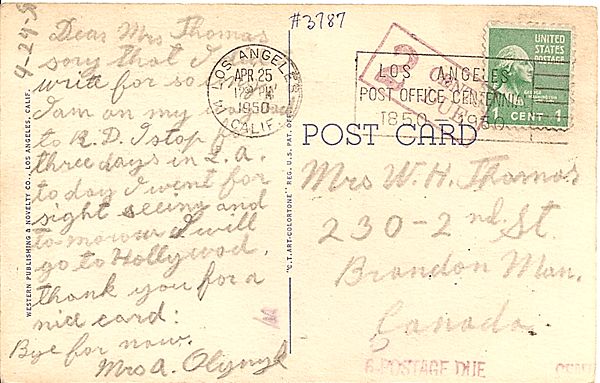 #3787
4-24-50
Dear Mrs Thomas
sory that I
write for so
I am on my way
to R.D. I stop for
three days in L.A.
to day I went for
sight seeing and
to morow I will
go to Hollywood.
thank you for a
nice card:
Bye for now.
Mrs A. Olynyk
WESTERN PUBLISHING & NOVELTY CO., LOS ANGELES, CALIF.
"C.T. ART-COLORTONE" REG. U.S. PAT. OFF.
LOS ANGELES
APR 25
12 PM
1950
CALIF.
2
LOS ANGELES
POST OFFICE CENTENNIAL
1850-1950
UNITED
STATES
POSTAGE
1 CENT 1
POST CARD
Mrs W. H. Thomas
230-2nd St
Brandon Man.
Canada
POSTAGE DUE